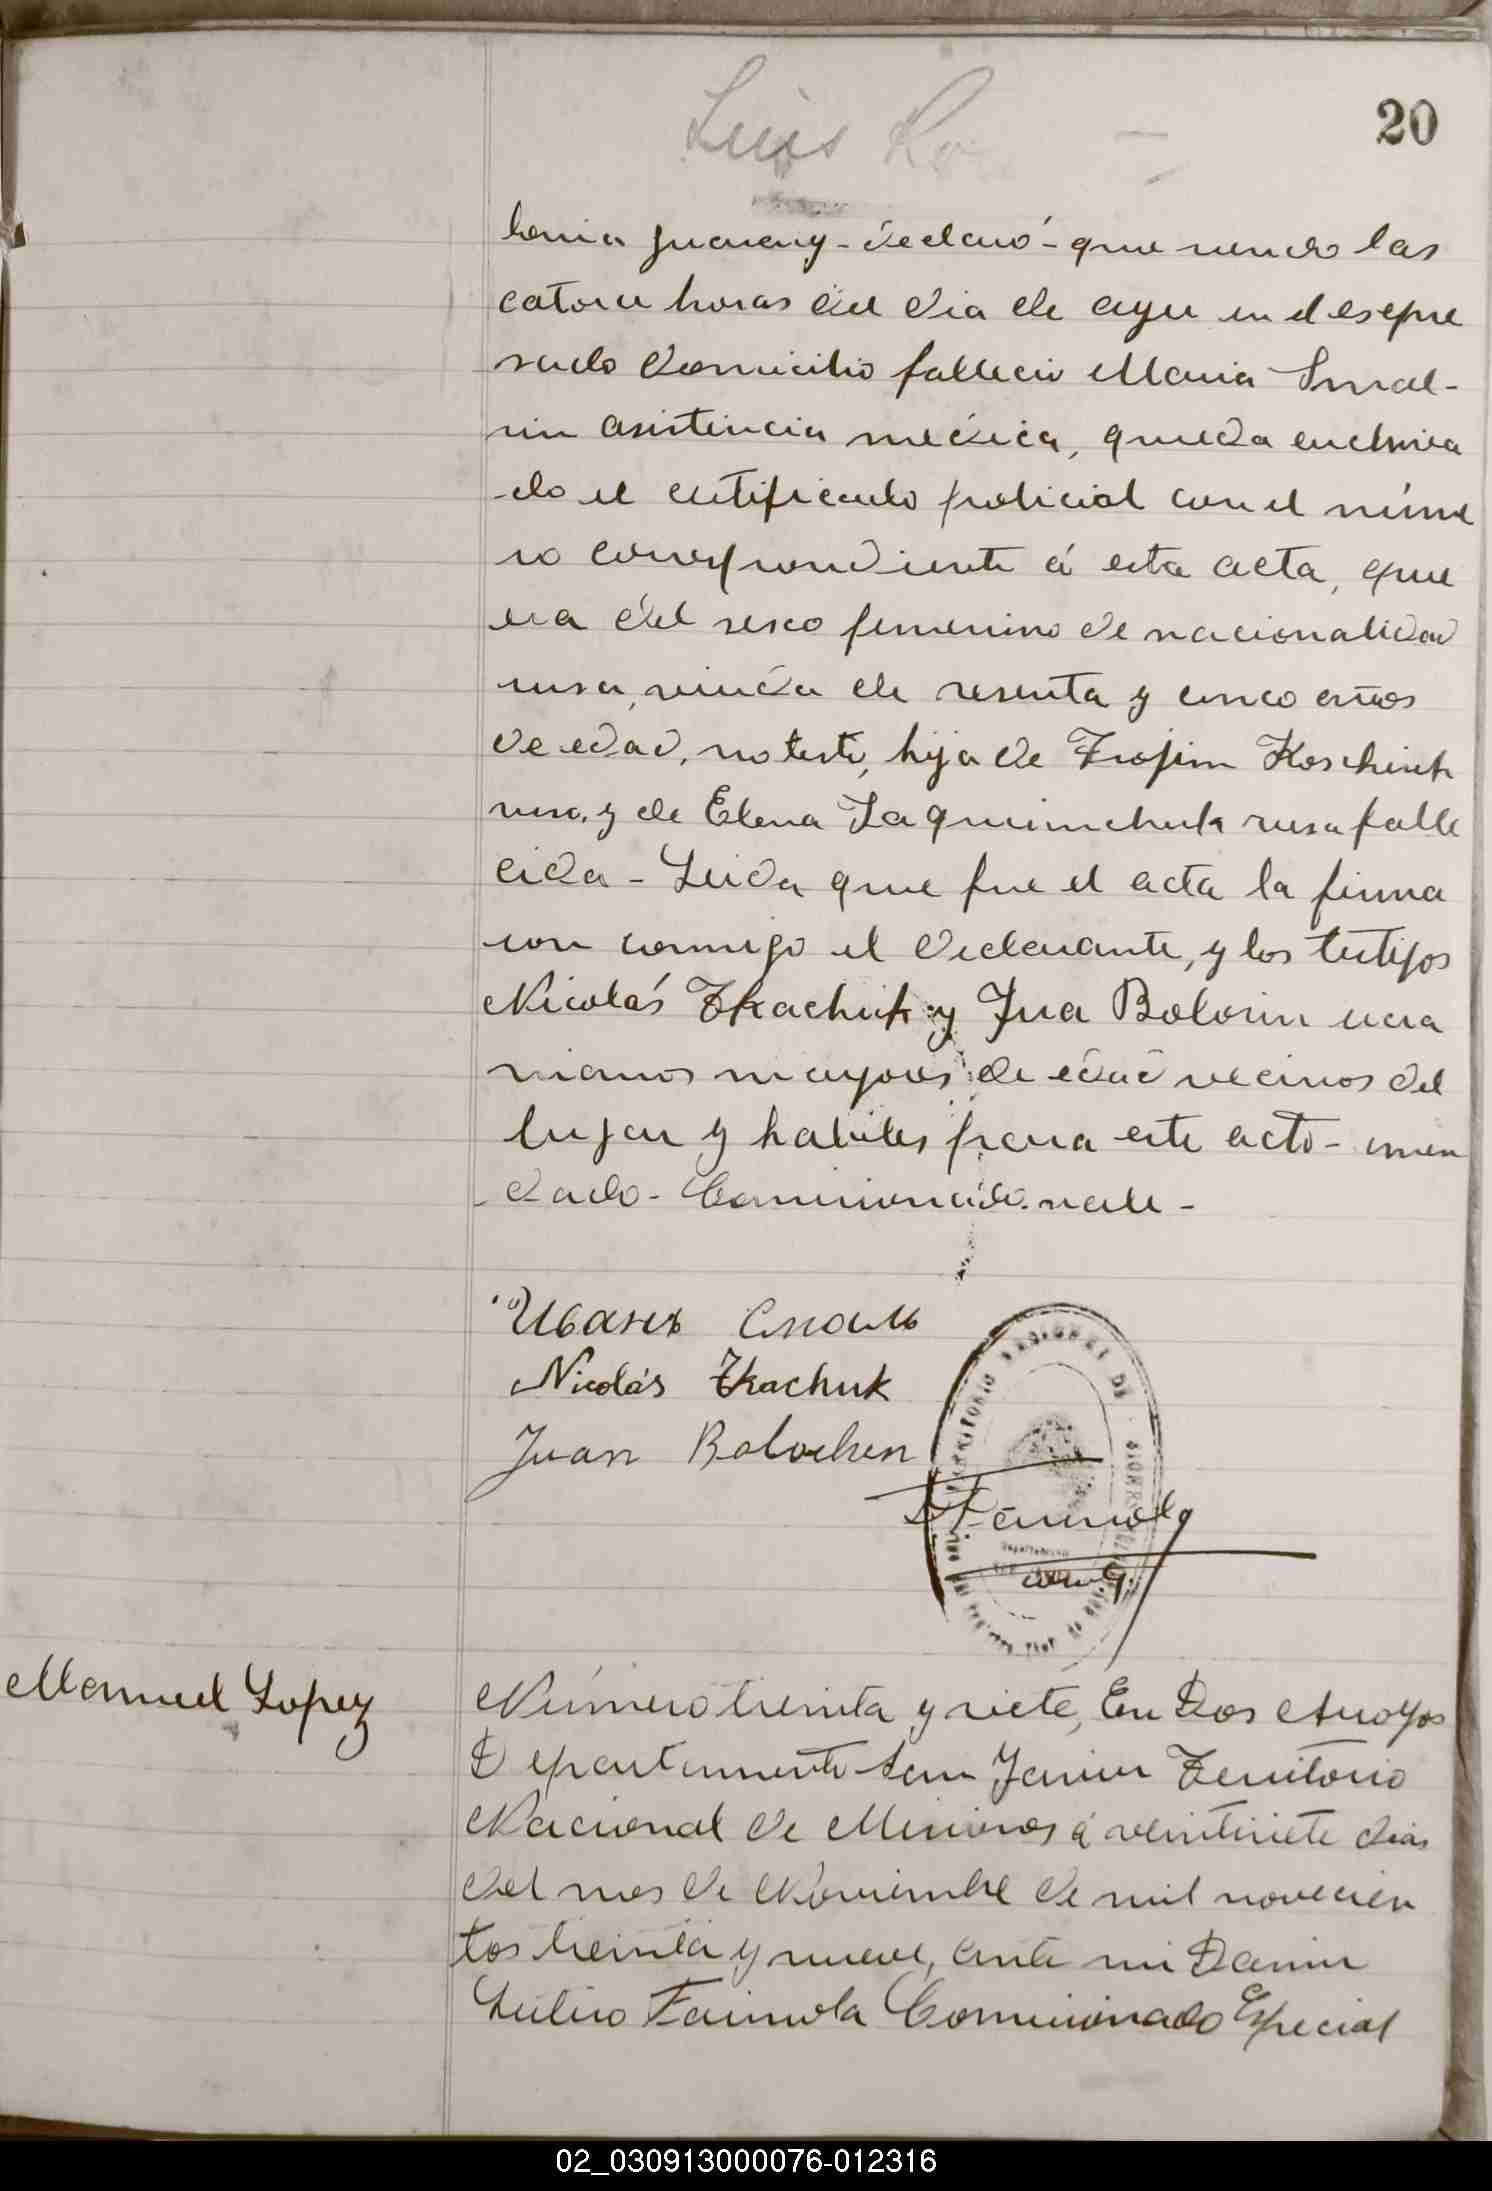 Luis
20
lonia Guarany - declaró - que siendo las
catorce horas del dia de ayer en el espre
sado domicilio falleció Maria Smal -
sin asistencia médica, queda archiva
do el certificado policial con el núme
ro correspondiente á esta acta, que
era del sexo femenino de nacionalidad
rusa, viuda de sesenta y cinco años
de edad, no testó, hija de Trofim Koschiuk
ruso, y de Elena Jaquimchuk rusa falle
cida - Leida que fue el acta la firma
ron conmigo el declarante, y los testigos
Nicolás Tkachuk y Jua Bolosin ucra
nianos mayores de edad vecinos del
lugar y habiles para este acto - enmen
dado - Comisionado. vale -
Иванъ Смаль
Nicolás Tkachuk
Juan Bolochen
Manuel Lopez
Número treinta y siete, En Dos Arroyos
Departamento San Javier Territorio
Nacional de Misiones á veintisiete dias
del mes de Noviembre de mil novecien
tos treinta y nueve, ante mi Danir
Julio Faimola Comisionado Especial
02_030913000076-012316